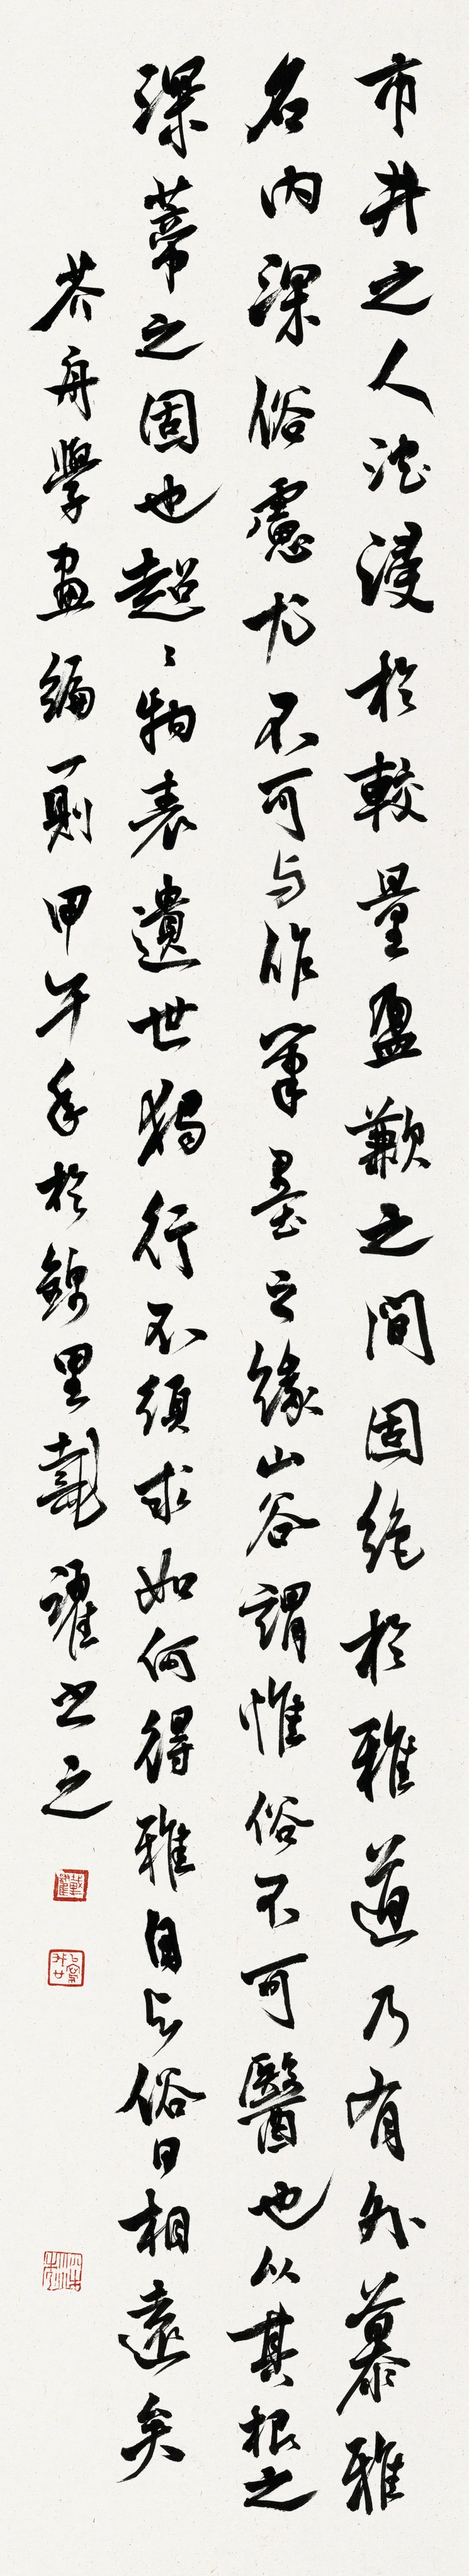 市井之人沈浸於較量盈歉之間固絶於雅道乃有外慕雅
名内深俗慮尤不可与作筆墨之緣山谷謂惟俗不可醫也以其根之
深蒂之固也超〻物表遺世獨行不須求如何得雅自与俗日相遠矣
芥舟學畫編一則甲午年於錦里戴躍書之